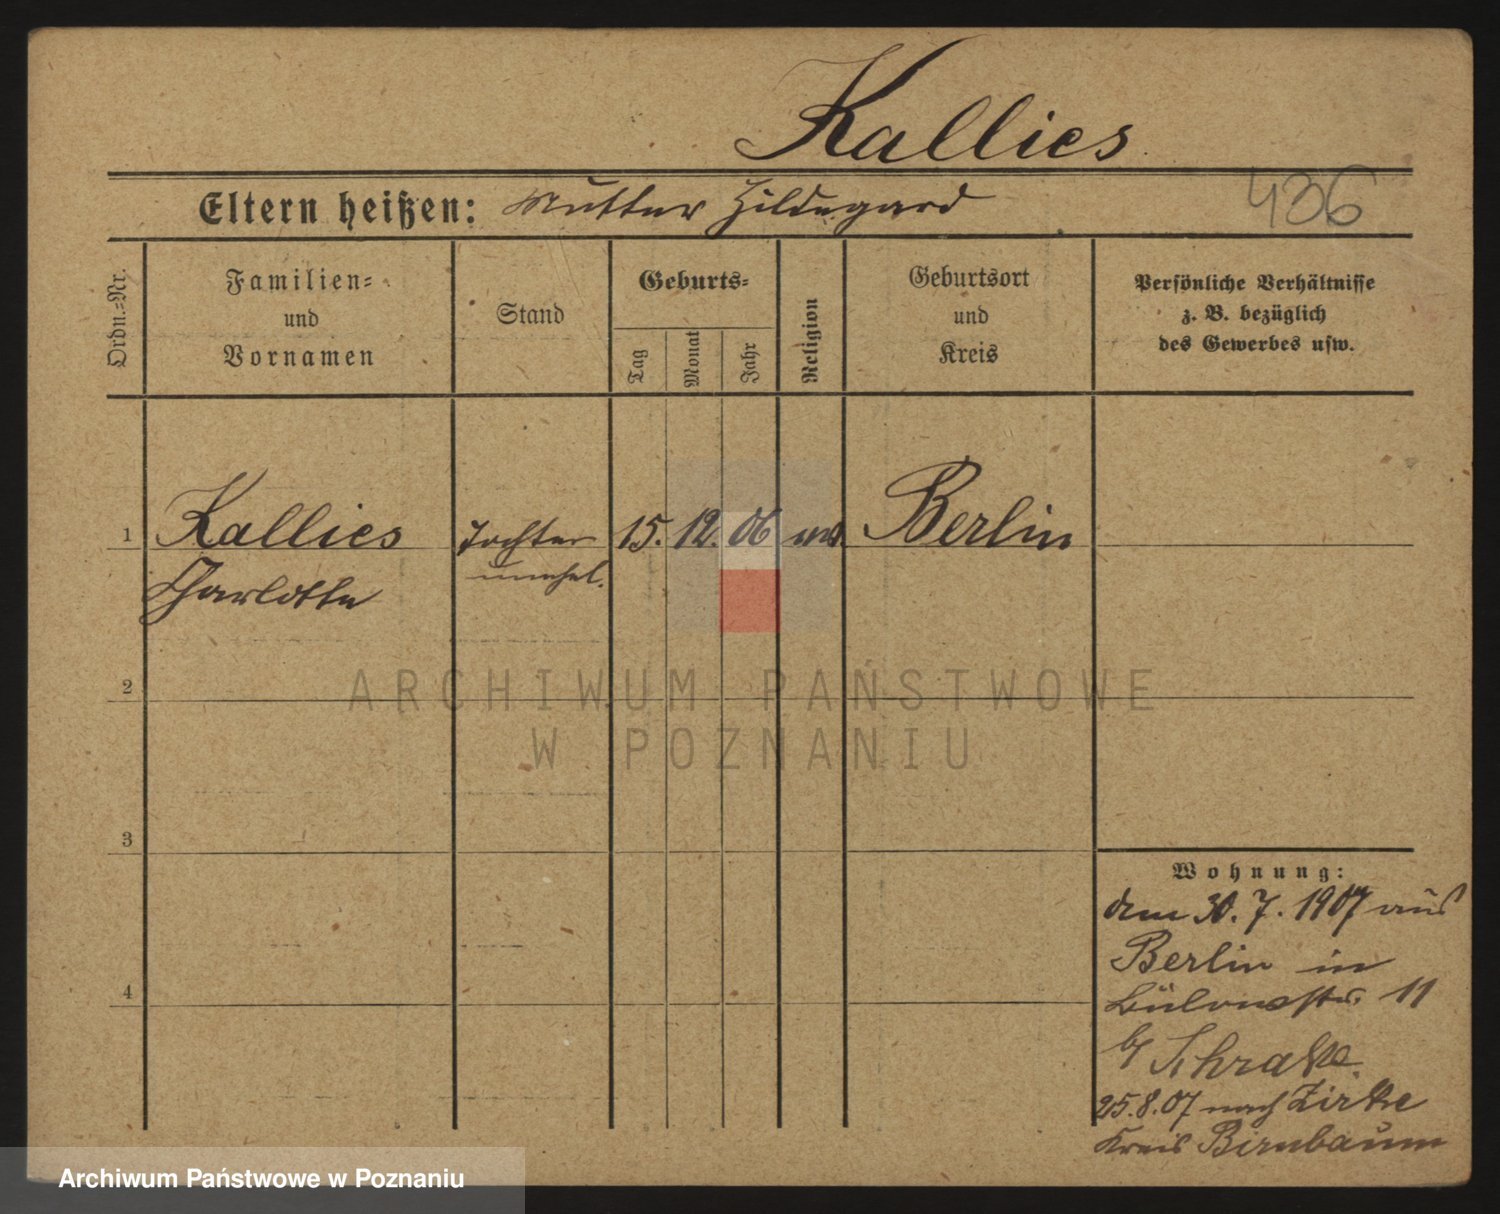 Kallies
Eltern heißen: Mutter Hildegard
436
Ordn.-Nr.
Familien- und Vornamen
Stand
Geburts-
Tag
Monat
Jahr
Religion
Geburtsort und Kreis
Persönliche Verhältnisse
z. B. bezüglich
des Gewerbes usw.
1 Kallies Tochter 15. 12. 06 Berlin
Charlotte unehel.
2
ARCHIWUM PAŃSTWOWE
W POZNANIU
3
Wohnung:
den 30. 7. 1907 aus
Berlin in
4
Bülowstr. 11
b/
25.8.07 nach Zirke
Kreis Birnbaum
Archiwum Państwowe w Poznaniu